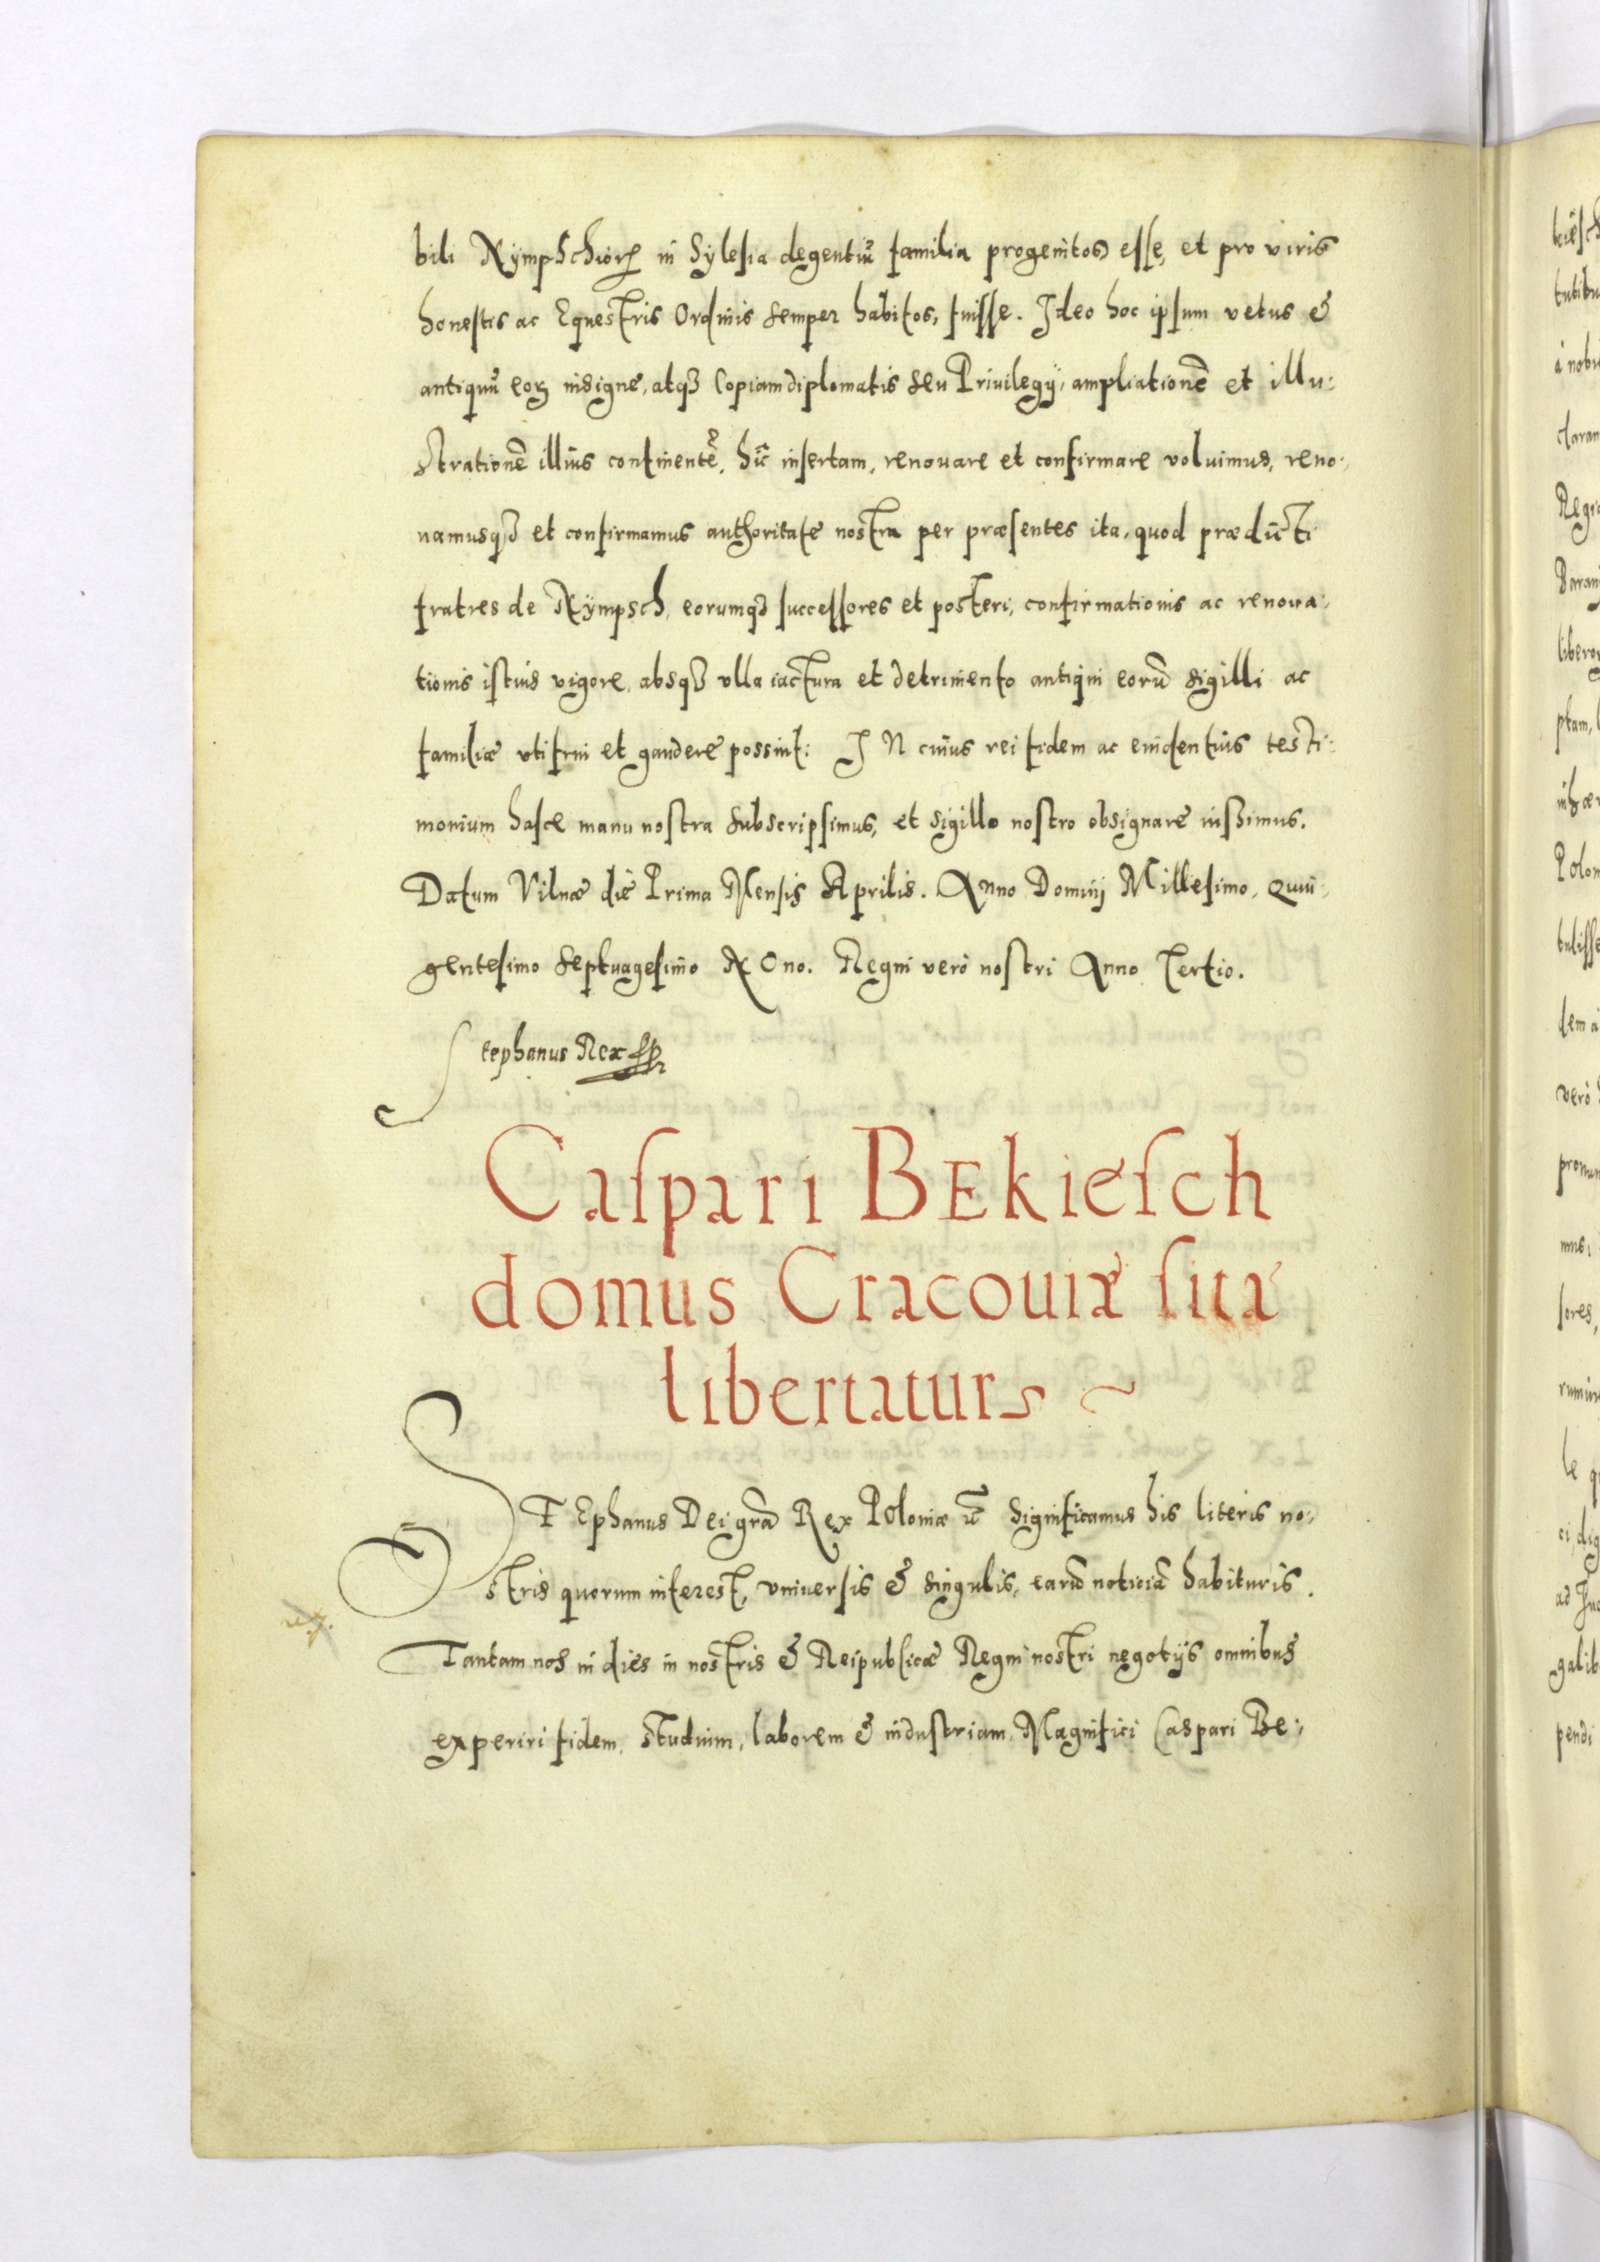 bili Nympschior in Sylesia degentiū familia progenitos esse, et pro viris
honestis ac Equestris Ordinis semper habitos, fuisse. Ideo hoc ipsum vetus &
antiquū eoꝝ insigne, atqꝫ Copiam diplomatis seu Priuilegÿ, ampliationē et illu:
strationē illius continentē, hic insertam, renouare et confirmare voluimus, reno:
uamusqꝫ et confirmamus authoritate nostra per præsentes ita, quod prædicti
fratres de Nÿmpsch, eorumqꝫ successores et posteri, confirmationis ac renoua:
tionis istius vigore, absqꝫ vlla iactura et detrimento antiqui eorū sigilli ac
familiæ vti frui et gaudere possint: IN cuius rei fidem ac euidentius testi:
monium hasce manu nostra subscripsimus, et sigillo nostro obsignare iussimus.
Datum Vilnæ die Prima Mensis Aprilis. Anno Domini Millesimo, Quin:
gentesimo septuagesimo NOno. Regni vero nostri Anno Tertio.
Stephanus Rex
Caspari BEkiesch
domus Cracouiæ sita
libertatur
STEphanus Dei grā Rex Poloniæ significamus his literis no:
stris quorum interest, vniuersis & singulis, earū noticiā habituris.
Tantam nos in dies in nostris & Reipublicæ Regni nostri negotÿs omnibus
experiri fidem, studium, laborem & industriam, Magnifici Caspari Be: